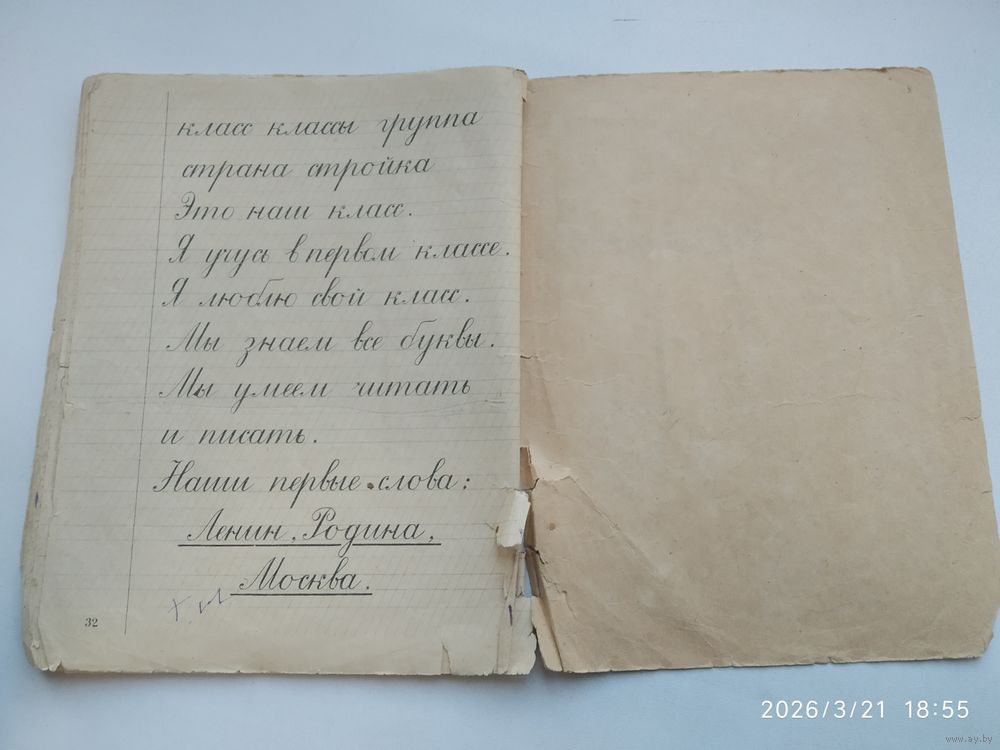 класс классы группа
страна стройка
Это наш класс.
Я учусь в первом классе.
Я люблю свой класс.
Мы знаем все буквы.
Мы умеем читать
и писать.
Наши первые слова:
Ленин, Родина,
Москва.
32
2026/3/21 18:55
www.ay.by